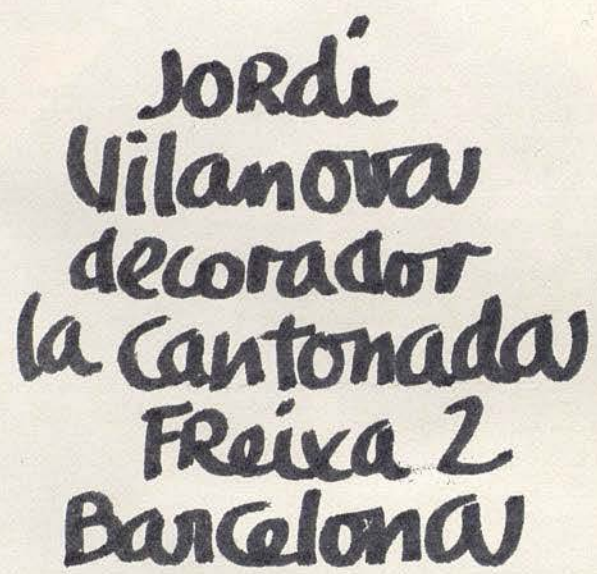 JORdi
Vilanova
decorador
la Cantonada
FReixa 2
Barcelona